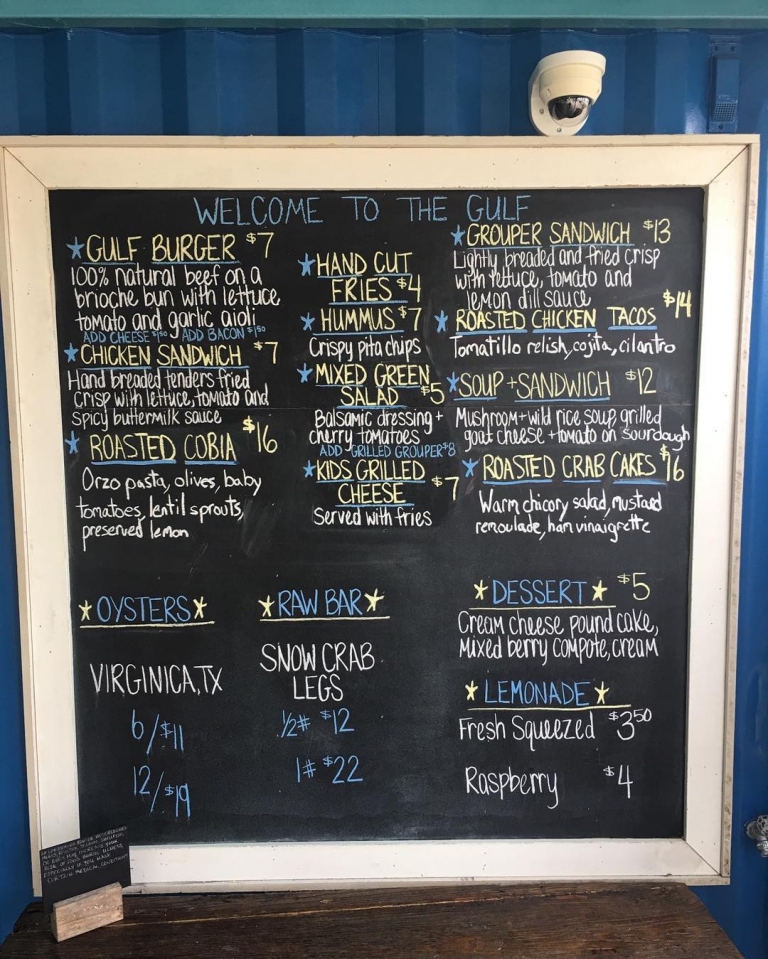 WELCOME TO THE GULF
GULF BURGER $7
100% natural beef on a
brioche bun with lettuce
tomato and garlic aioli
ADD CHEESE $1.50 ADD BACON $1.50
CHICKEN SANDWICH $7
Hand breaded tenders fried
crisp with lettuce, tomato and
spicy buttermilk sauce
ROASTED COBIA $16
Orzo pasta, olives, baby
tomatoes, lentil sprouts,
preserved lemon
HAND CUT
FRIES $4
HUMMUS $7
Crispy pita chips
MIXED GREEN
SALAD $5
Balsamic dressing +
cherry tomatoes
ADD GRILLED GROUPER $8
KIDS GRILLED
CHEESE $7
Served with fries
GROUPER SANDWICH $13
Lightly breaded and fried crisp
with lettuce, tomato and
lemon dill sauce
ROASTED CHICKEN TACOS $14
Tomatillo relish, cojita, cilantro
SOUP + SANDWICH $12
Mushroom + wild rice soup, grilled
goat cheese + tomato on sourdough
ROASTED CRAB CAKES $16
Warm chicory salad, mustard
remoulade, ham vinaigrette
OYSTERS
VIRGINICA, TX
6/$11
12/$19
RAW BAR
SNOW CRAB
LEGS
1/2# $12
1# $22
DESSERT $5
Cream cheese pound cake,
Mixed berry compote, cream
LEMONADE
Fresh Squeezed $3.50
Raspberry $4